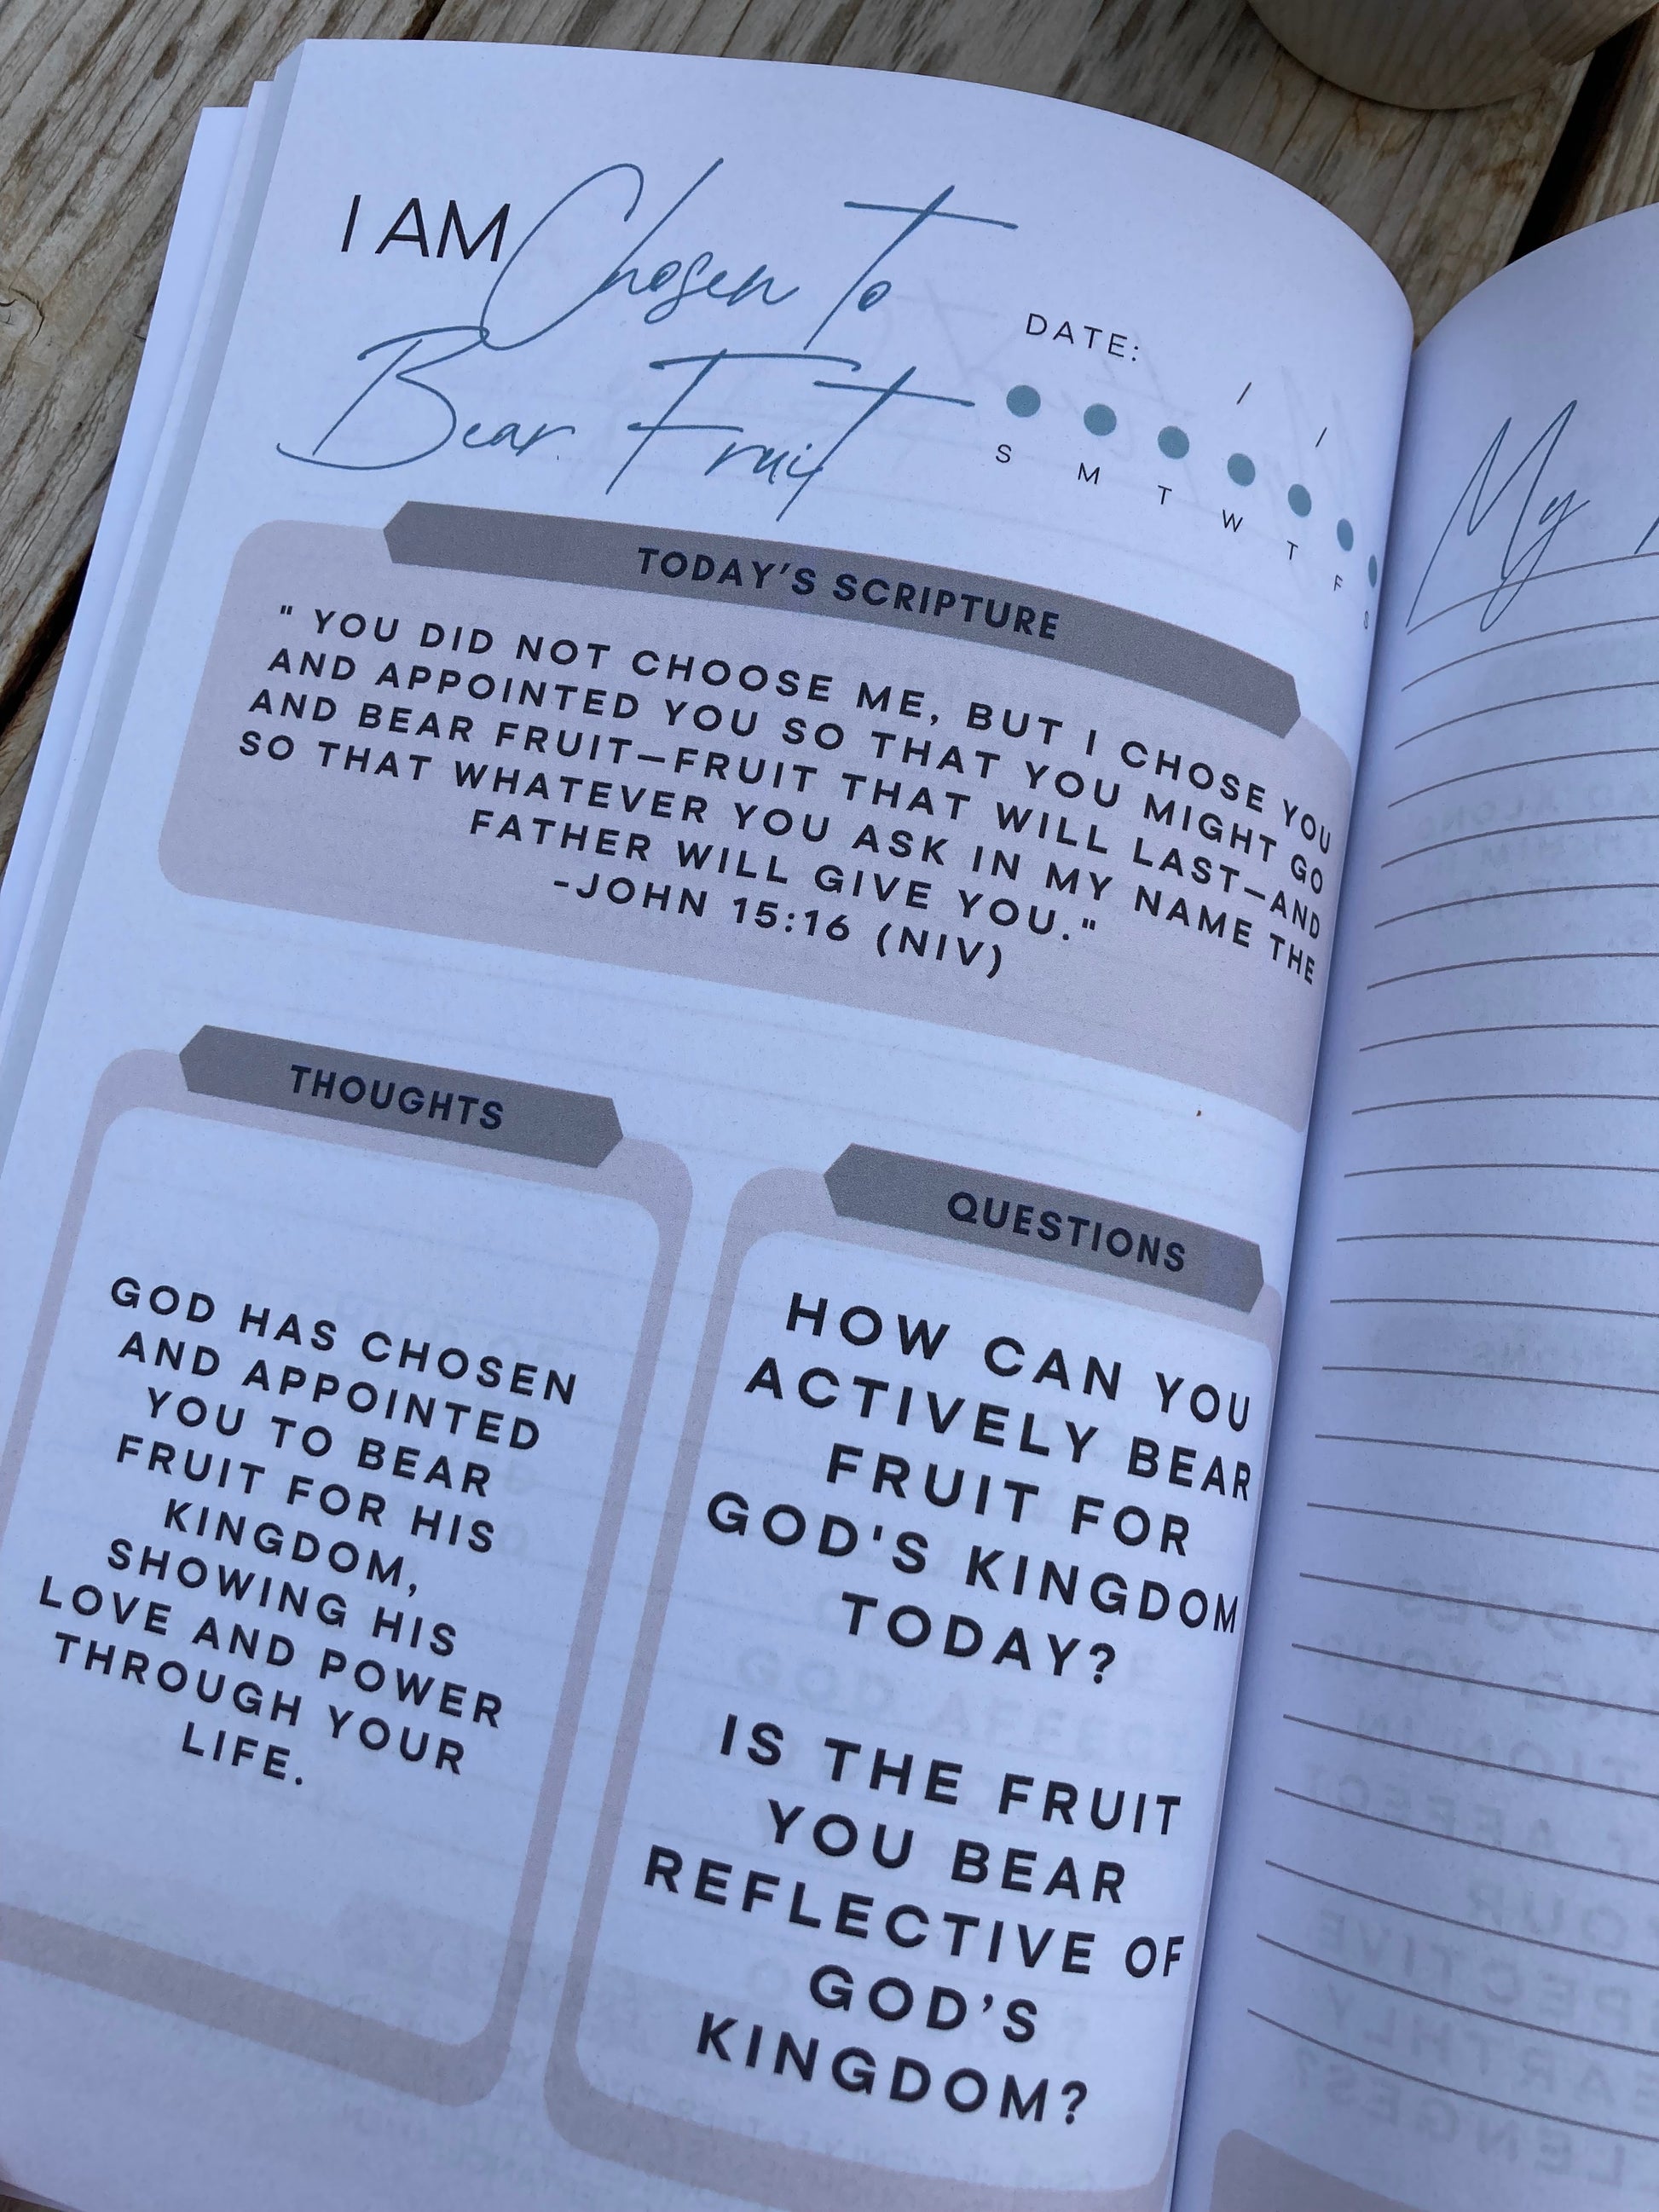 I AM Chosen To
Bear Fruit
DATE: / /
S M T W T F S
TODAY'S SCRIPTURE
" YOU DID NOT CHOOSE ME, BUT I CHOSE YOU
AND APPOINTED YOU SO THAT YOU MIGHT GO
AND BEAR FRUIT—FRUIT THAT WILL LAST—AND
SO THAT WHATEVER YOU ASK IN MY NAME THE
FATHER WILL GIVE YOU."
-JOHN 15:16 (NIV)
THOUGHTS
GOD HAS CHOSEN
AND APPOINTED
YOU TO BEAR
FRUIT FOR HIS
KINGDOM,
SHOWING HIS
LOVE AND POWER
THROUGH YOUR
LIFE.
QUESTIONS
HOW CAN YOU
ACTIVELY BEAR
FRUIT FOR
GOD'S KINGDOM
TODAY?
IS THE FRUIT
YOU BEAR
REFLECTIVE OF
GOD'S
KINGDOM?
My